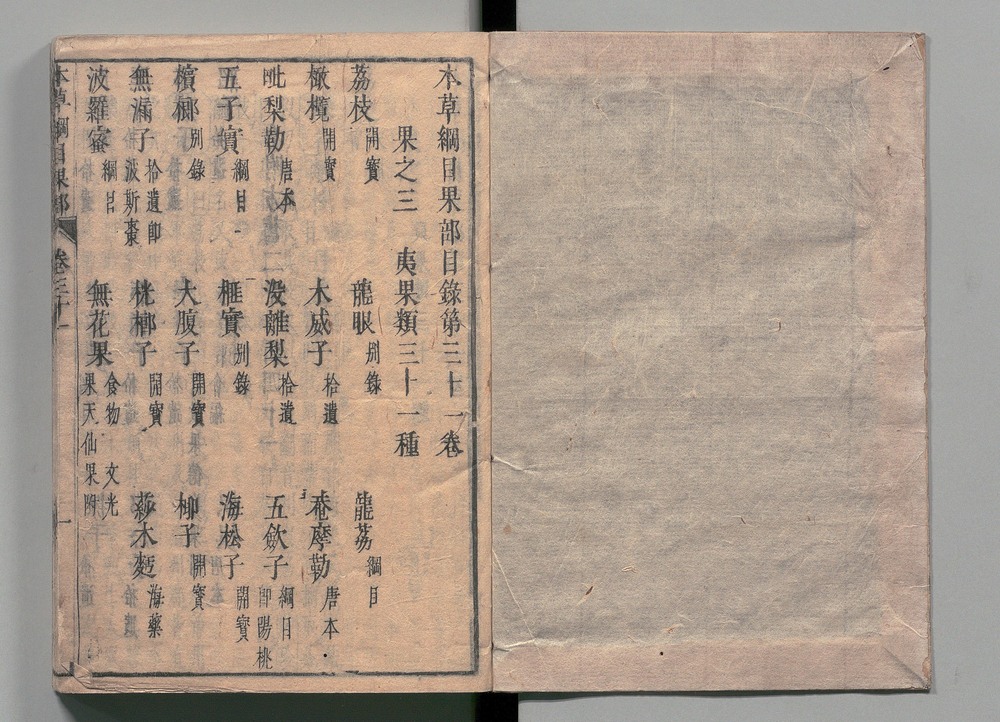 本草綱目果部目錄第三十一卷
果之三　夷果類三十一種
荔枝 開寶　龍眼 別錄　龍荔 綱目
橄欖 開寶　木威子 拾遺　菴摩勒 唐本
毗梨勒 唐本　没離梨 拾遺　五歛子 綱目 即陽桃
五子實 綱目　榧實 別錄　海松子 開寶
檳榔 別錄　大腹子 開寶　椰子 開寶
無漏子 拾遺即波斯棗　桄榔子 開寶　莎木麪 海藥
波羅蜜 綱目　無花果 食物 文光果天仙果附
本草綱目果部　卷三十一　一